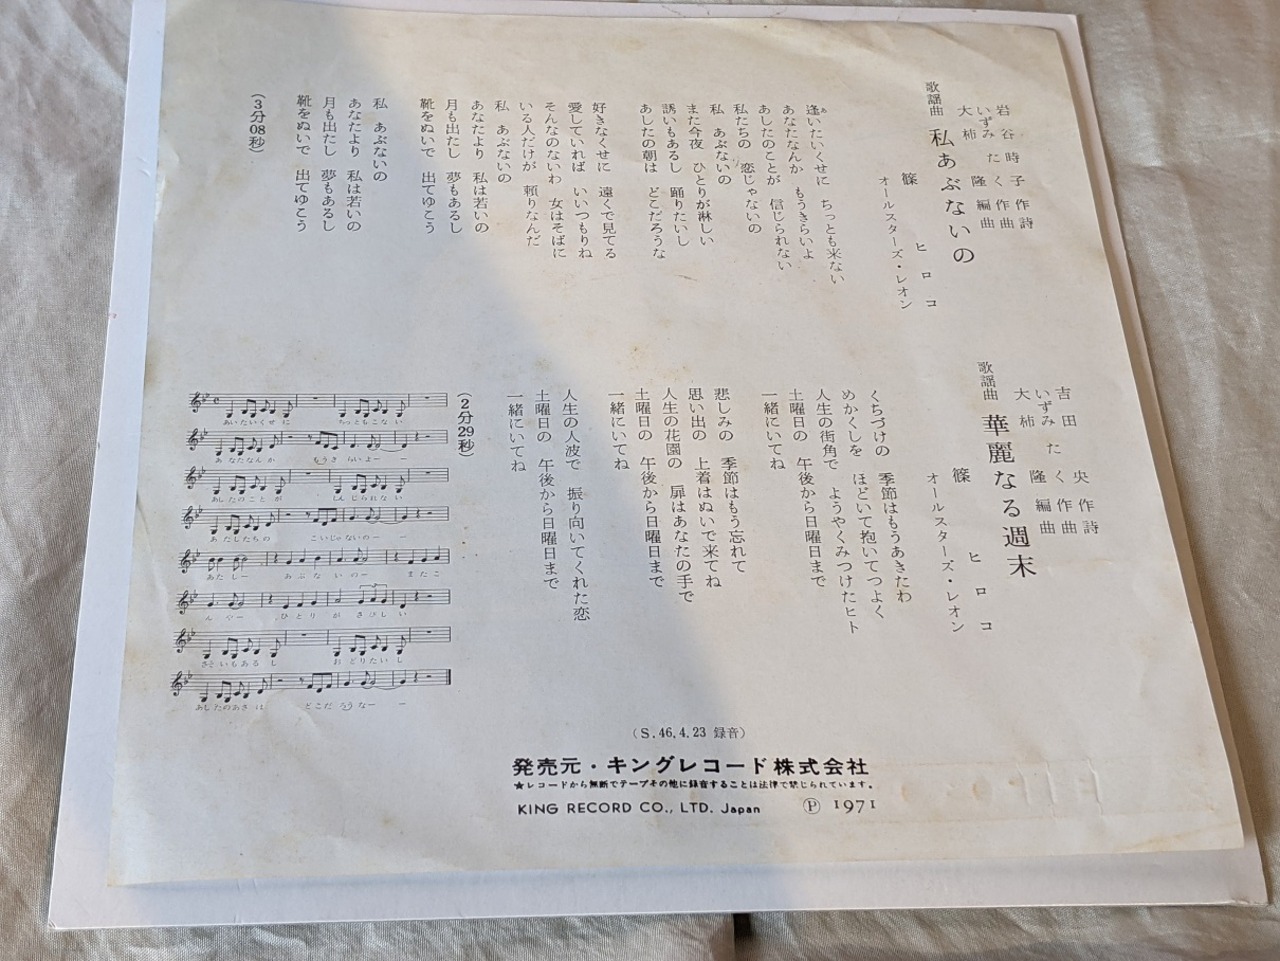 歌謡曲 私あぶないの
岩谷時子 作詩
いずみたく 作曲
大柿 隆 編曲
篠 ヒロコ
オールスターズ・レオン
逢いたいくせに ちっとも来ない
あなたなんか もうきらいよ
あしたのことが 信じられない
私たちの 恋じゃないの
私 あぶないの
また今夜 ひとりが淋しい
誘いもあるし 踊りたいし
あしたの朝は どこだろうな
好きなくせに 遠くで見てる
愛していれば いいつもりね
そんなのないわ 女はそばに
いる人だけが 頼りなんだ
私 あぶないの
あなたより 私は若いの
月も出たし 夢もあるし
靴をぬいで 出てゆこう
私 あぶないの
あなたより 私は若いの
月も出たし 夢もあるし
靴をぬいで 出てゆこう
(3分08秒)
歌謡曲 華麗なる週末
吉田 央 作詩
いずみたく 作曲
大柿 隆 編曲
篠 ヒロコ
オールスターズ・レオン
くちづけの 季節はもうあきたわ
めかくしを ほどいて抱いてつよく
人生の街角で ようやくみつけたヒト
土曜日の 午後から日曜日まで
一緒にいてね
悲しみの 季節はもう忘れて
思い出の 上着はぬいで来てね
人生の花園の 扉はあなたの手で
土曜日の 午後から日曜日まで
一緒にいてね
人生の人波で 振り向いてくれた恋
土曜日の 午後から日曜日まで
一緒にいてね
(2分29秒)
あいたいくせに ちっともこない
あなたなんか もうきらいよー ー
あしたのことが しんじられない
あたしたちの こいじゃないのー ー
あたしー あぶないのー またこ
んやー ひとりがさびしい
さそいもあるし おどりたいし
あしたのあさは どこだろうなー ー
(S.46.4.23 録音)
発売元・キングレコード株式会社
★レコードから無断でテープその他に録音することは法律で禁じられています。
KING RECORD CO., LTD. Japan Ⓟ 1971